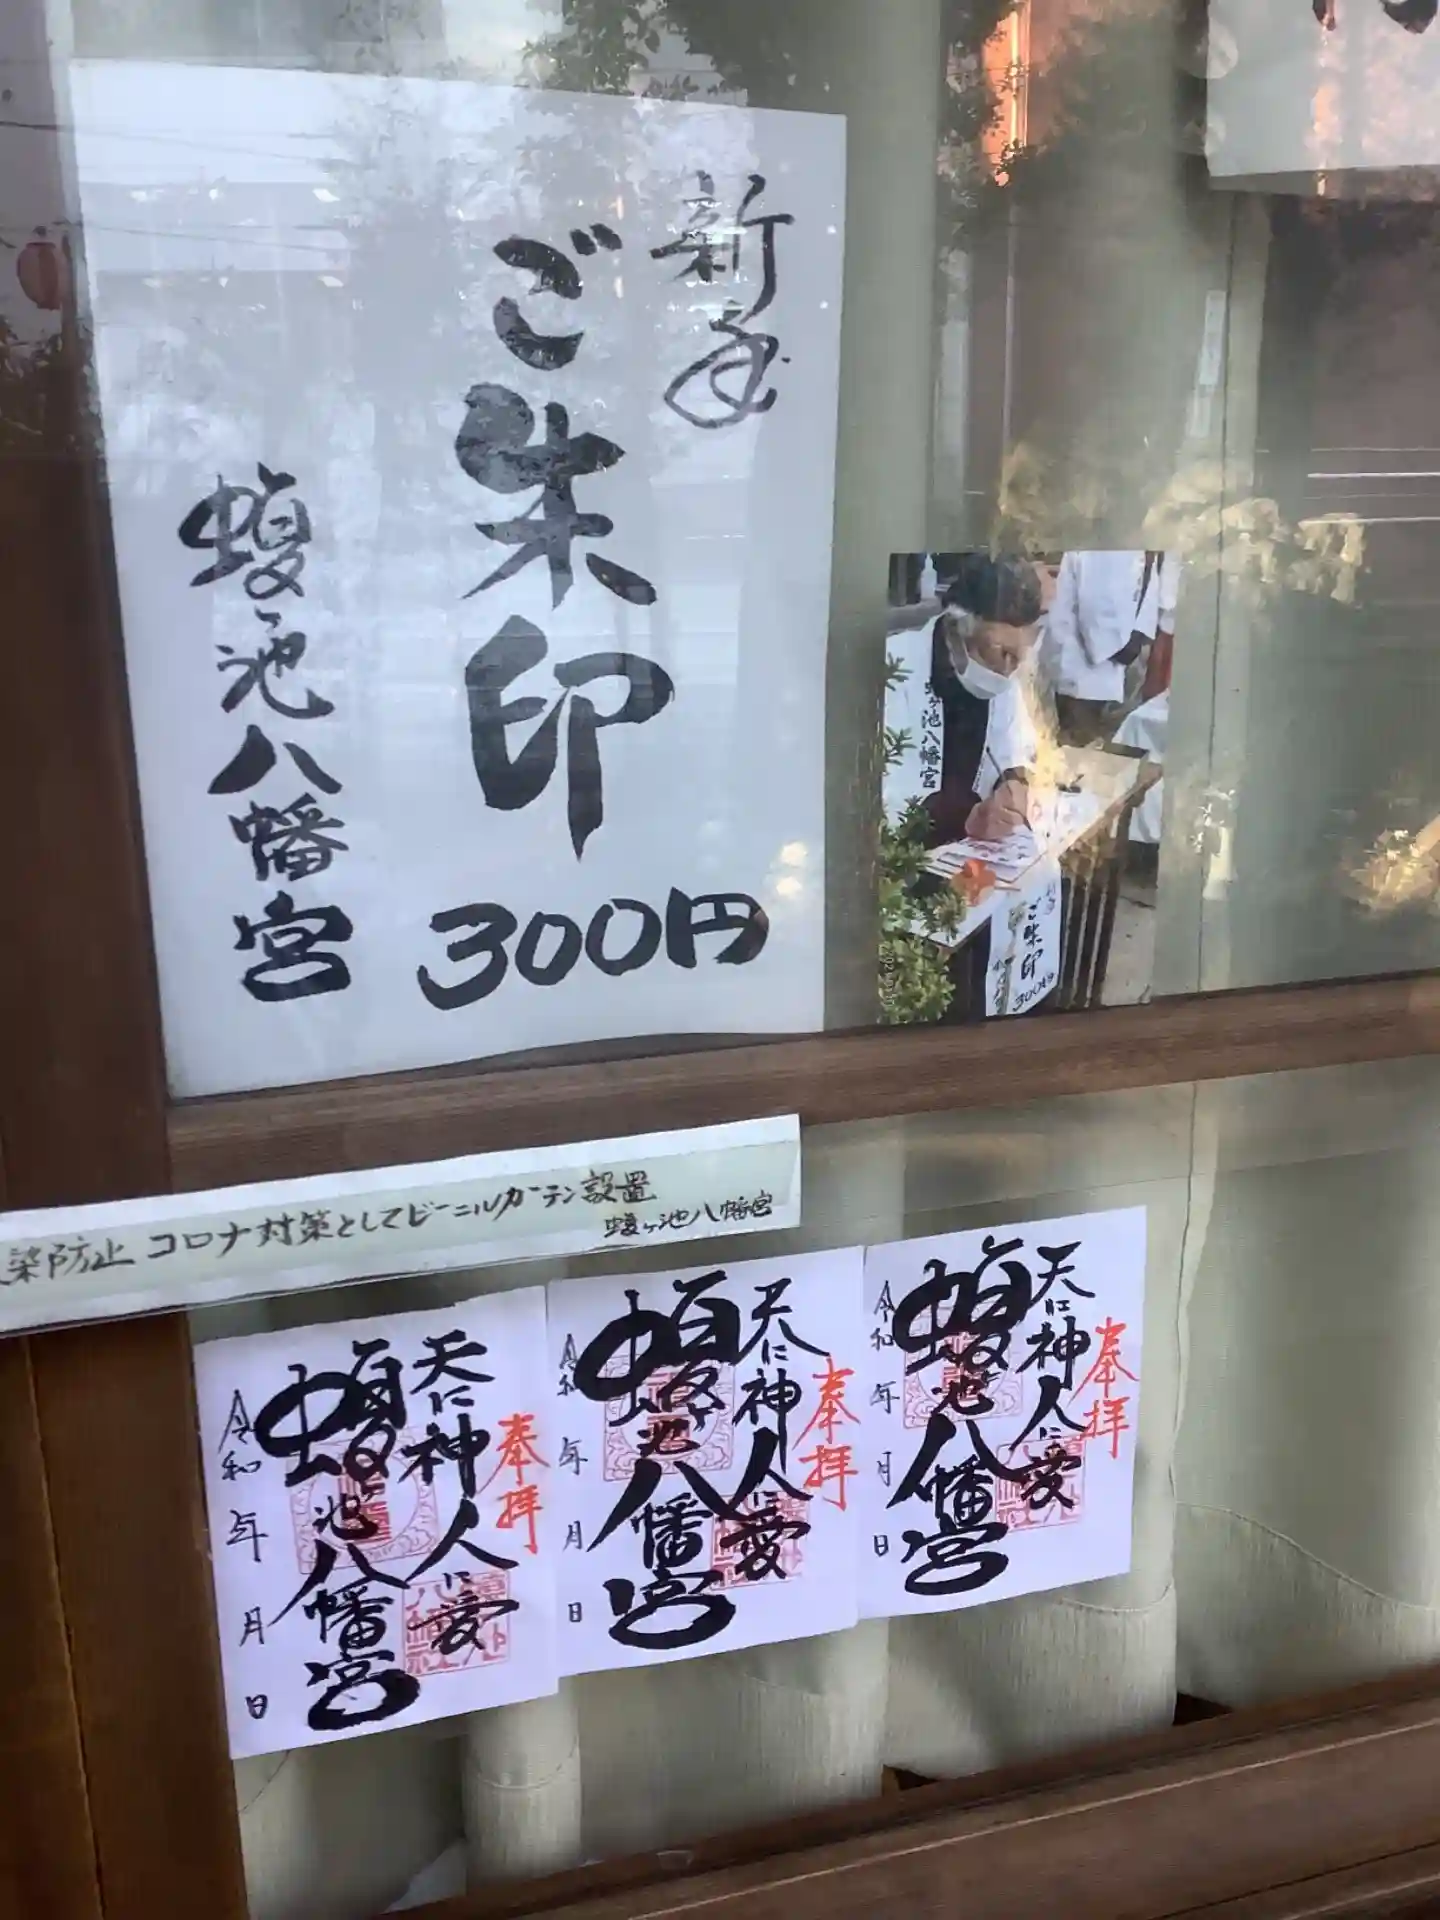 新年
ご朱印
300円
蝮ヶ池八幡宮
蝮ヶ池八幡宮
ご朱印
300円
染防止 コロナ対策としてビーニルカーテン設置
蝮ヶ池八幡宮
奉拝
天に神人に愛
蝮ヶ池八幡宮
令和 年 月 日
奉拝
天に神人に愛
蝮ヶ池八幡宮
令和 年 月 日
奉拝
天に神人に愛
蝮ヶ池八幡宮
令和 年 月 日